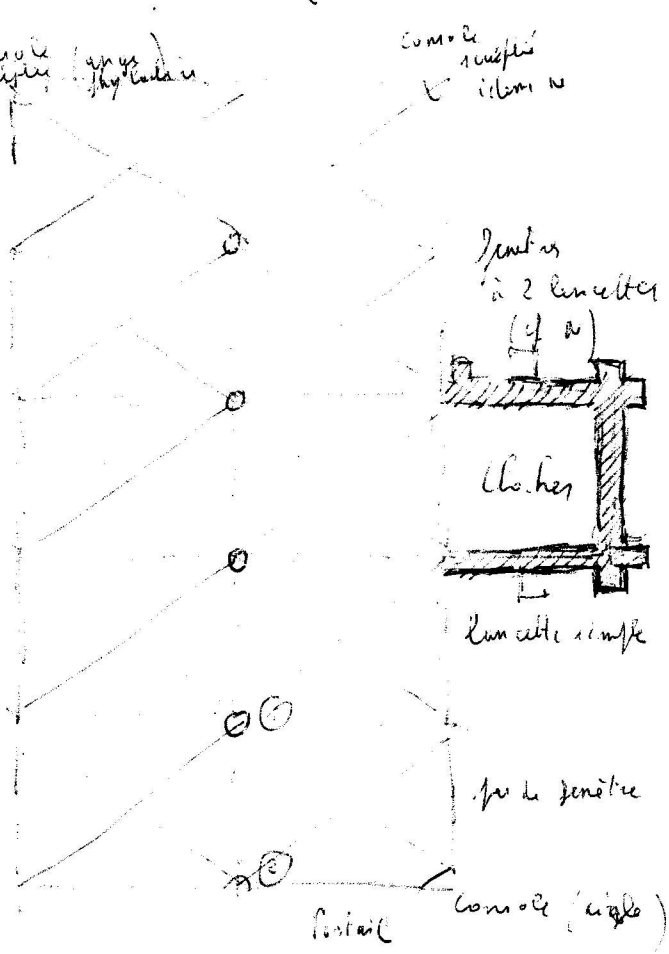 console
sculptée (ange
phylactère)
console
sculptée
idem N
Fenêtres
à 2 lancettes
(cf N)
Clocher
lancette simple
pas de fenêtre
Portail
console (aigle)